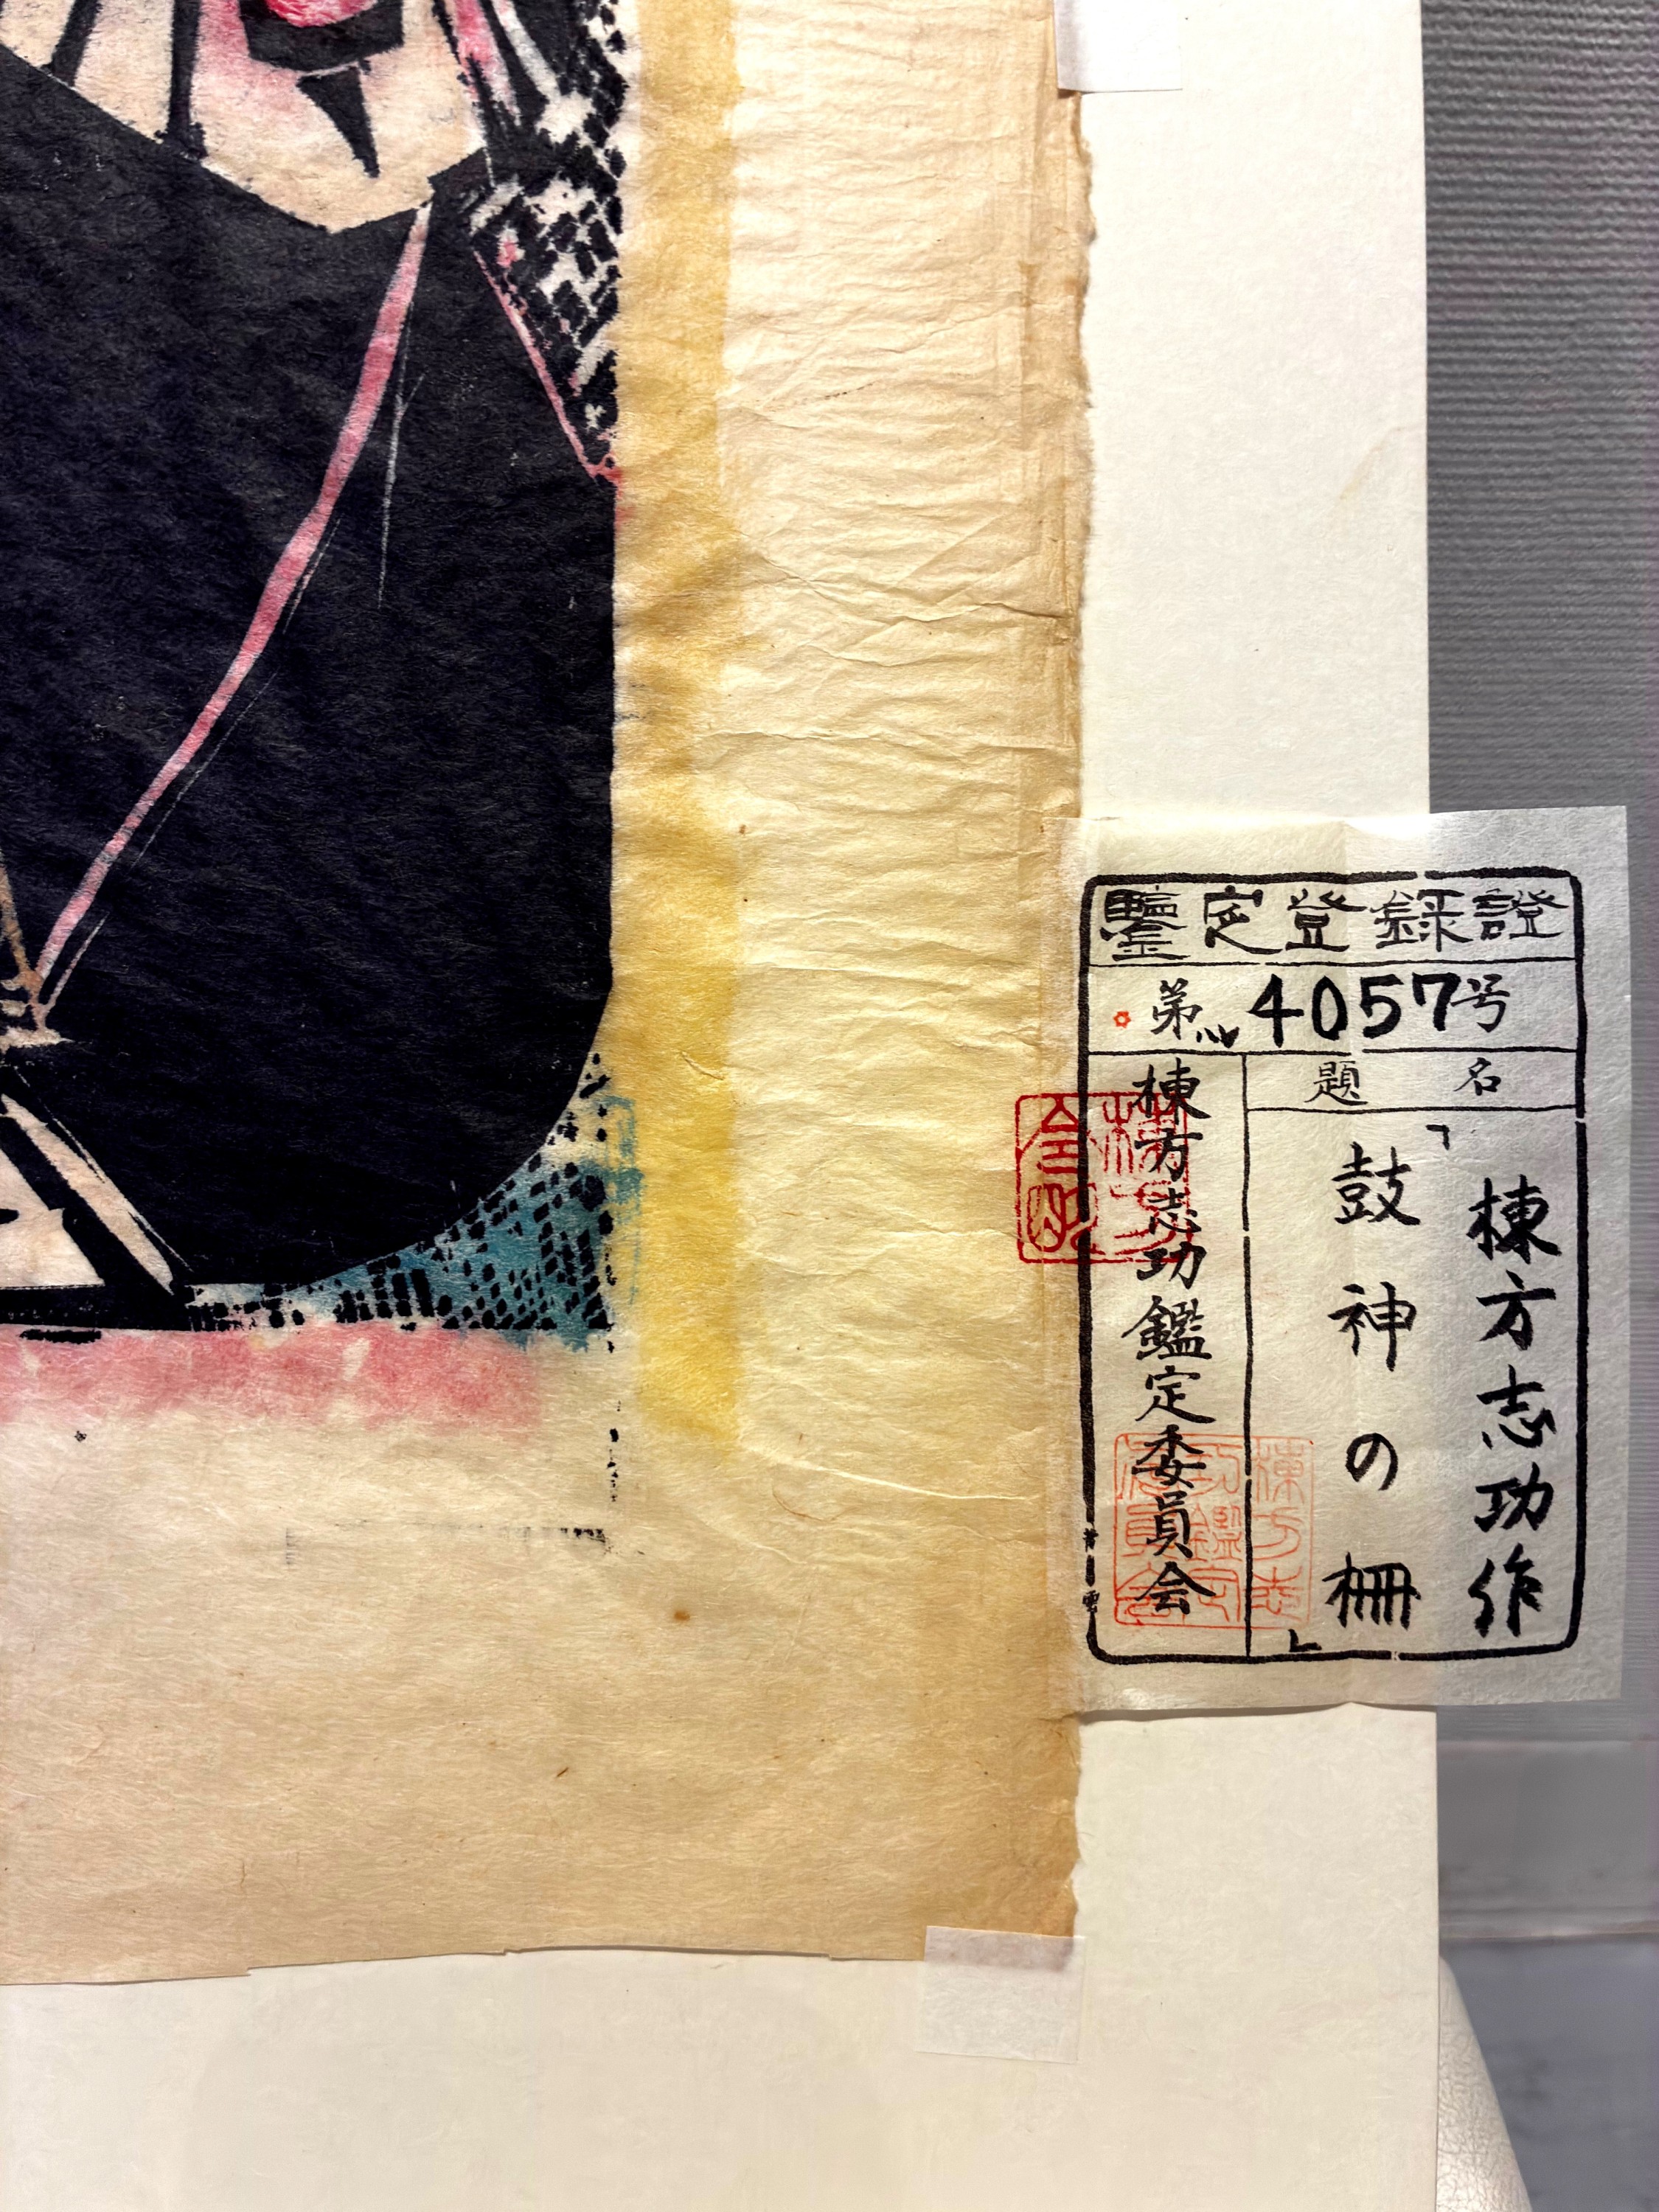 鑒定登録證
第4057号
題名
棟方志功作
「鼓神の柵」
棟方志功鑑定委員会